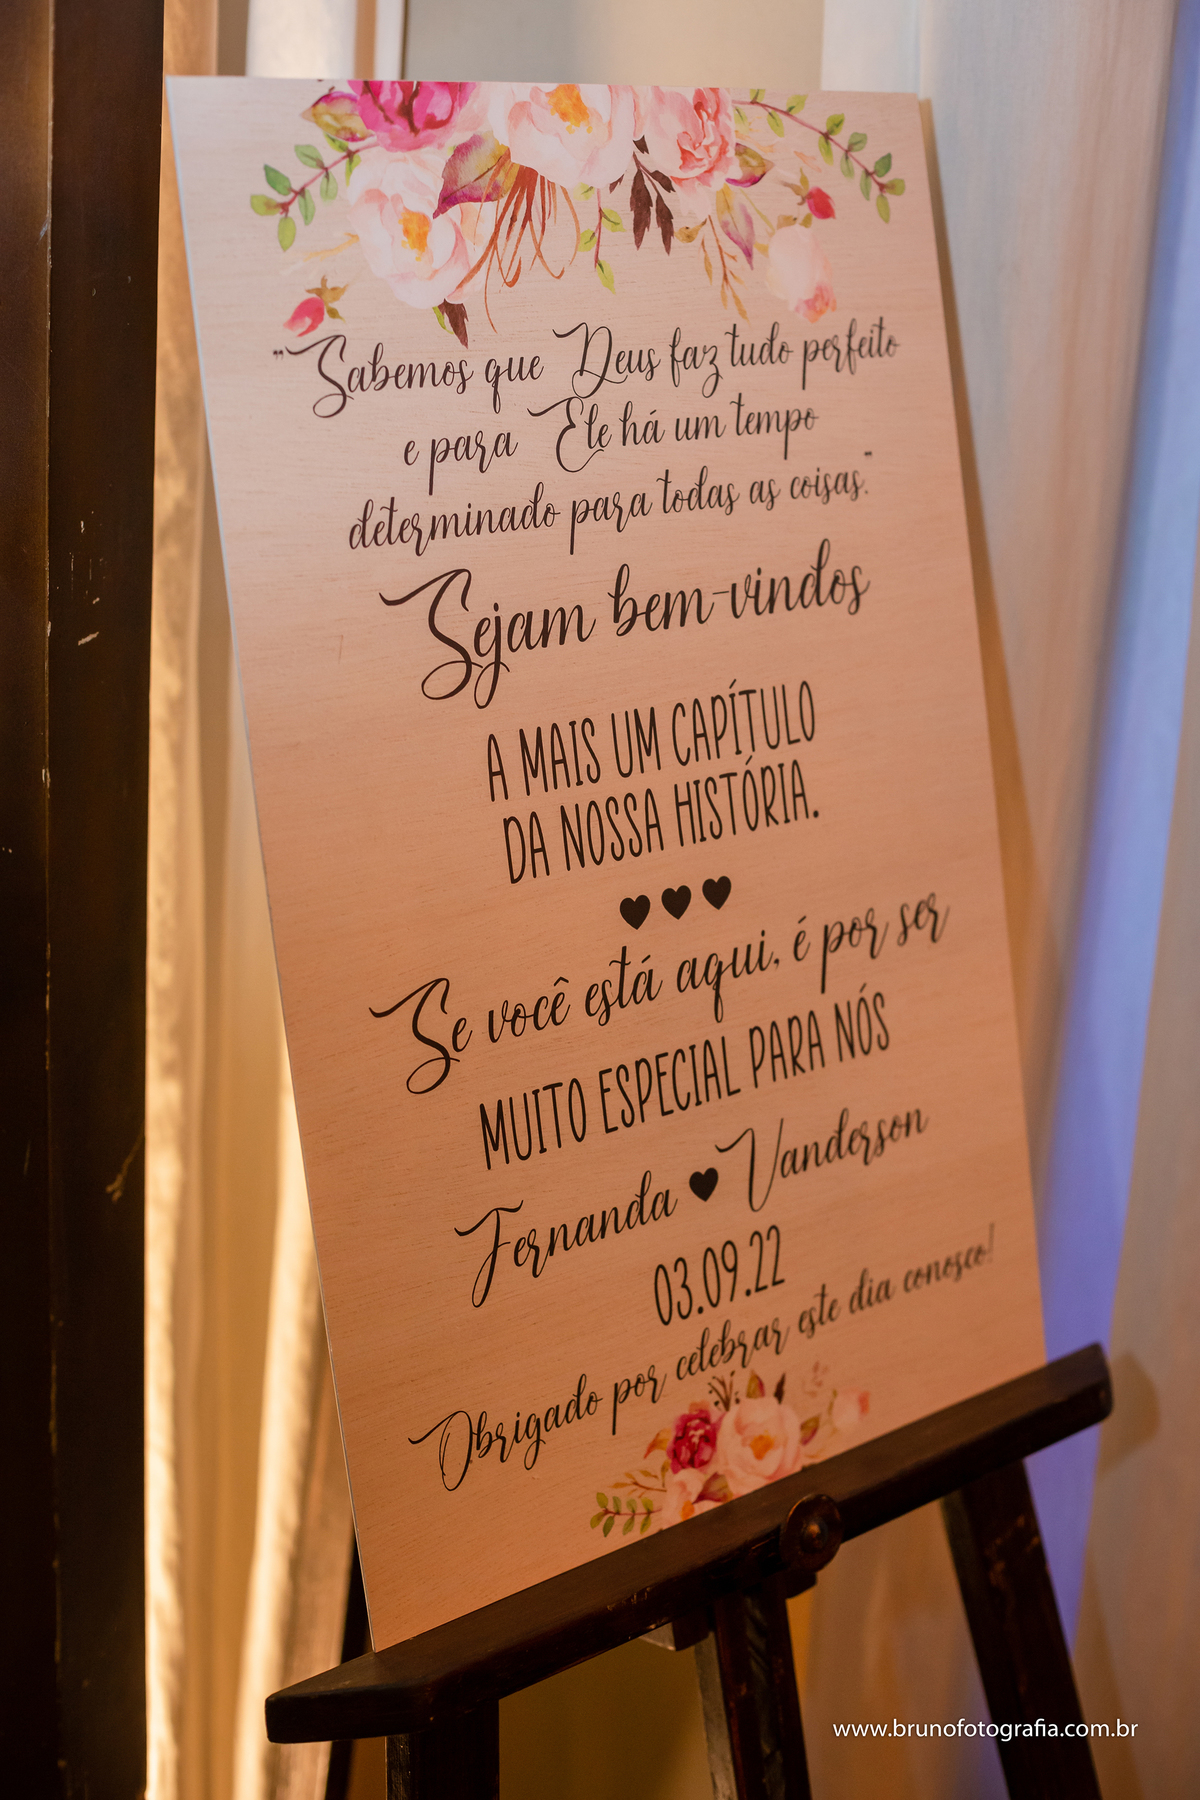 "Sabemos que Deus faz tudo perfeito
e para Ele há um tempo
determinado para todas as coisas."
Sejam bem-vindos
A MAIS UM CAPÍTULO
DA NOSSA HISTÓRIA.
♥♥♥
Se você está aqui, é por ser
MUITO ESPECIAL PARA NÓS
Fernanda ♥ Vanderson
03.09.22
Obrigado por celebrar este dia conosco!
www.brunofotografia.com.br